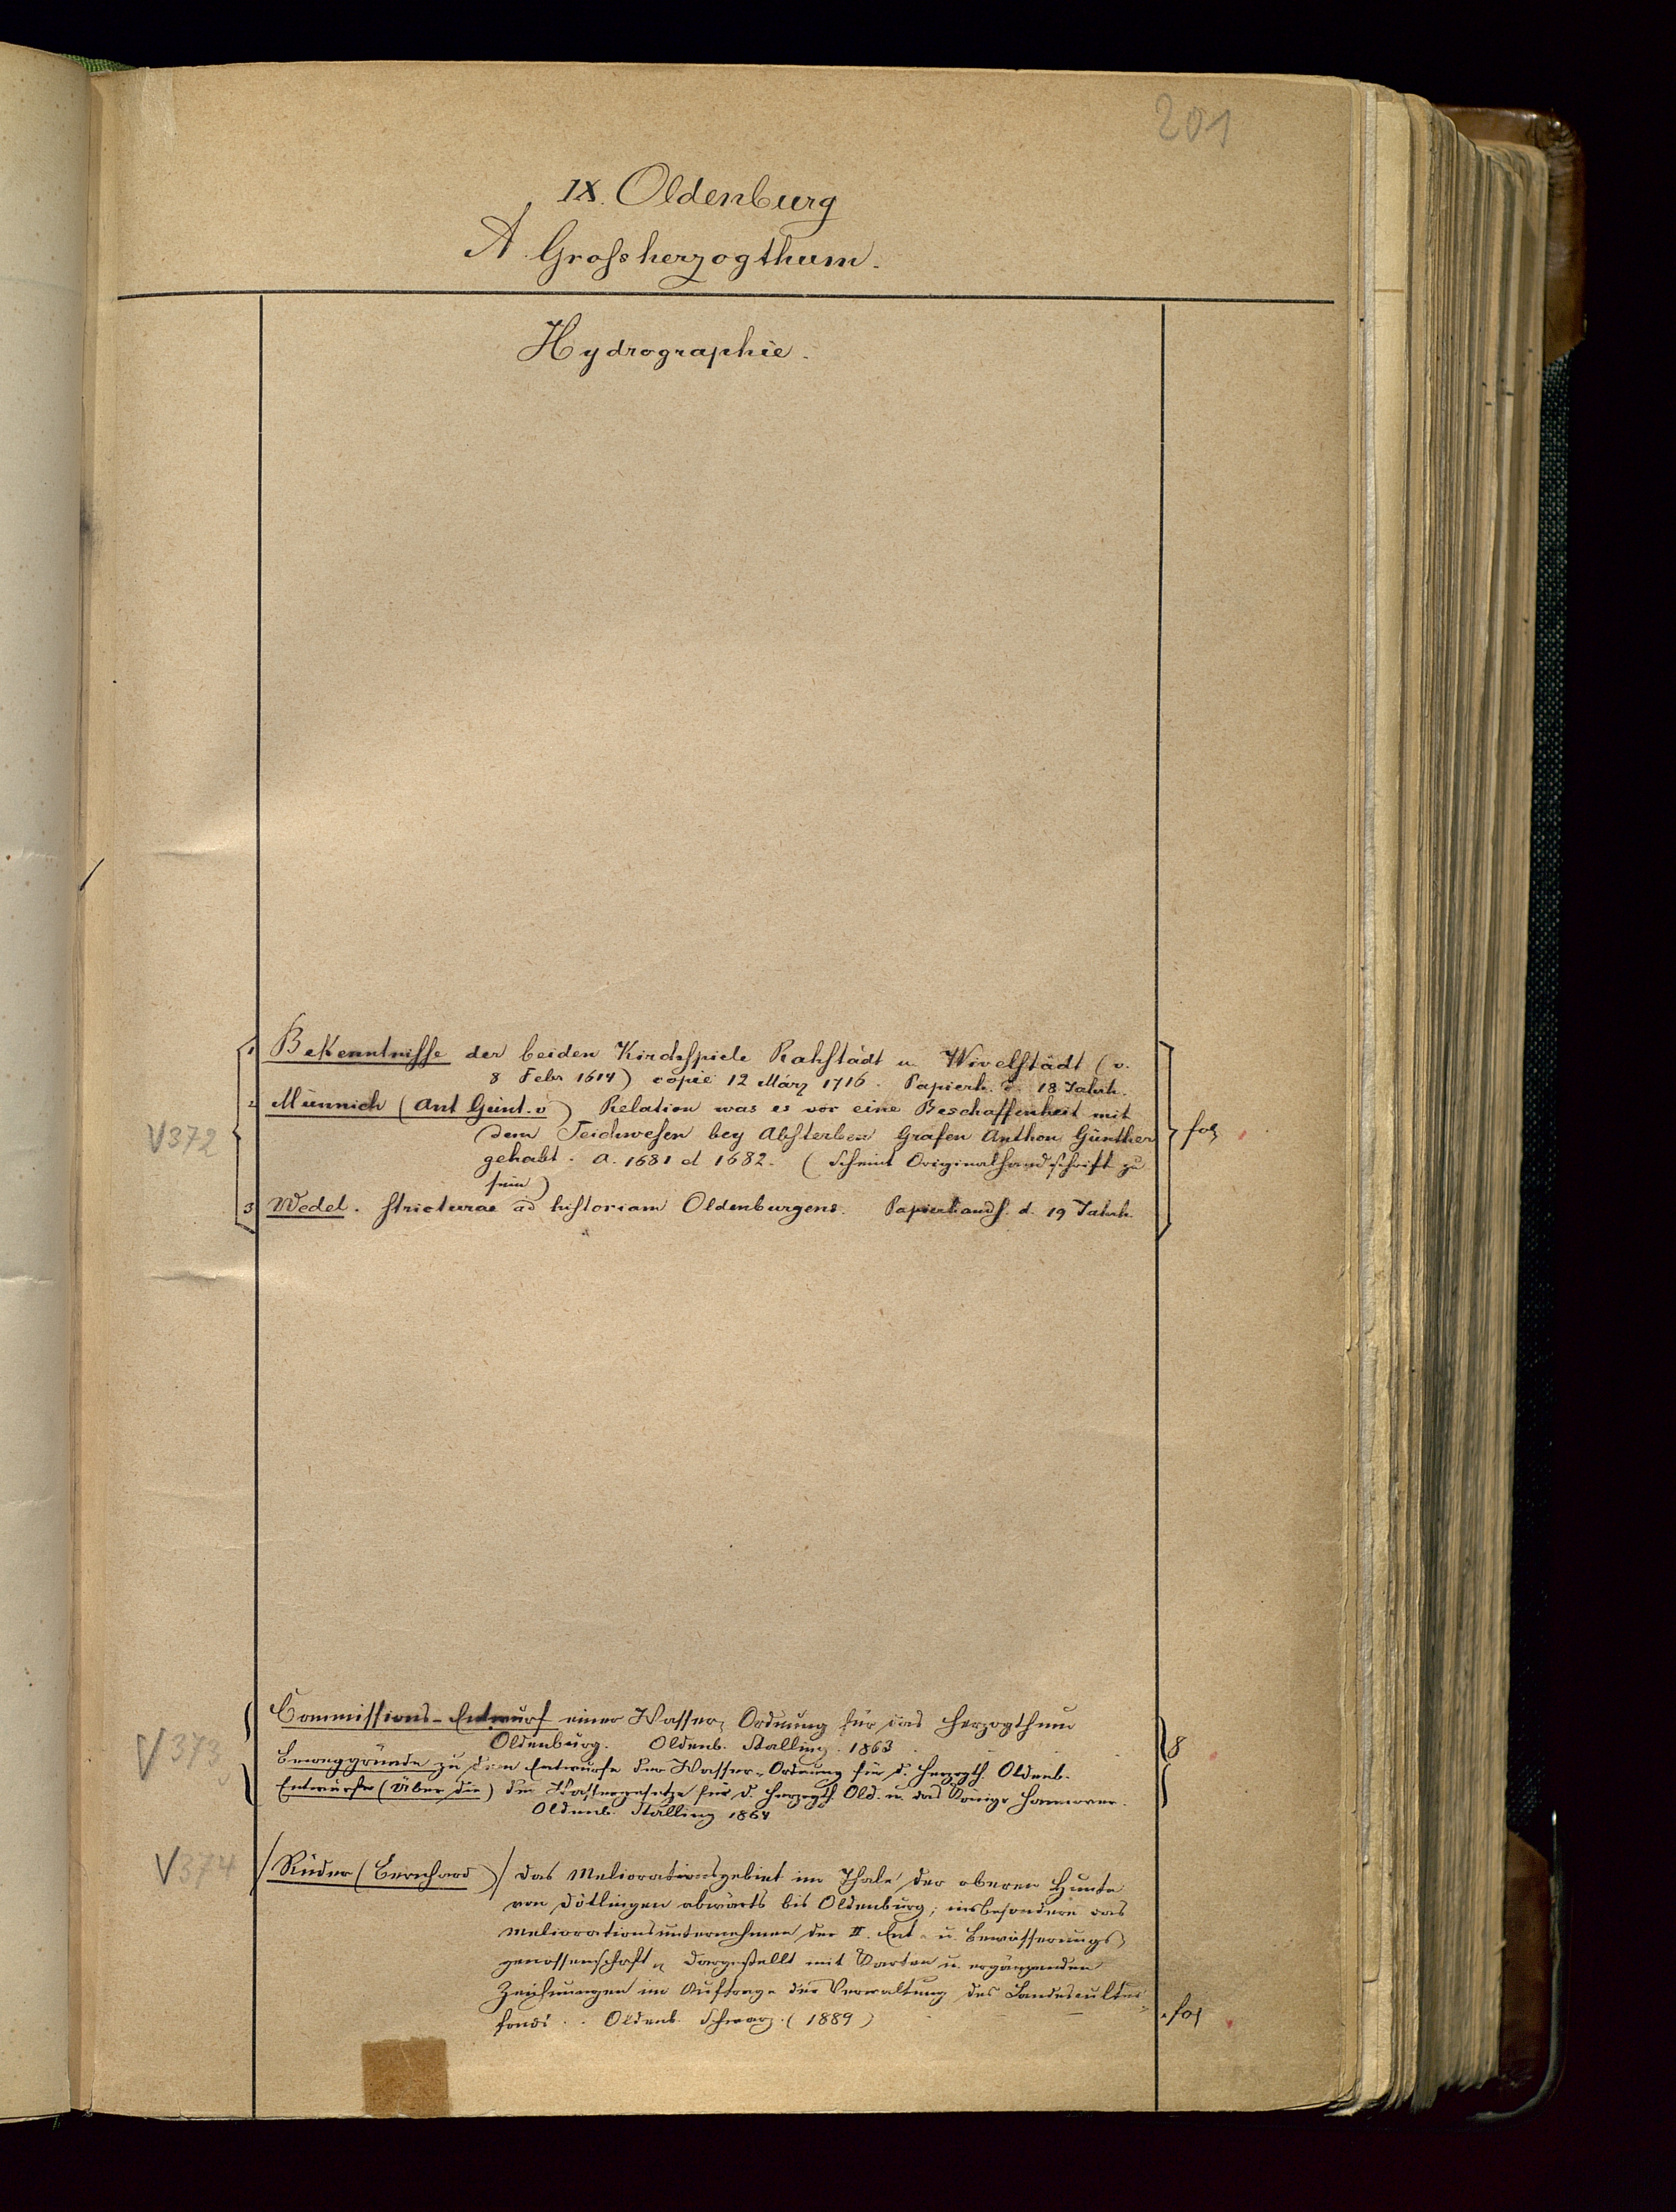 201
IX. Oldenburg
A. Grossherzogthum.
Hydrographie.
1 Bekenntnisse der beiden Kirchspiele Rahstädt u. Wivelstädt (v.
8 Febr 1614) copie 12 März 1716. Papierh. d. 18 Jahrh.
2 Münnich (Ant Günt. v) Relation was es vor eine Beschaffenheit mit
dem Teichwesen bey Absterben Grafen Anthon Günther
V372
fol
gehabt. A. 1681 et 1682. (Scheint Originalhandschrift zu
sein)
3 Wedel. Stricturae ad historiam Oldenburgens. Papierhands. d. 19 Jahrh.
Commissions-Entwurf einer Wasser-Ordnung für das Herzogthum
Oldenburg. Oldenb. Stalling. 1863
V373
8
Beweggründe zu dem Entwurfe der Wasser-Ordnung für d. Herzgth. Oldenb.
Entwürfe (Über die) der Wassergesetze für d. Herzgth. Old. u. das Königr Hannover.
Oldenb. Stalling 1864
V374
Rüder (Bernhard) Das Meliorationsgebiet im Thale der oberen Hunte
von Dötlingen abwärts bis Oldenburg; insbesondere das
Meliorationsunternehmen der II. Ent- u. Bewässerungs
genossenschaft, dargestellt mit Karten u. ergänzenden
Zeichnungen im Auftrage der Verwaltung des Landescultur-
fonds. Oldenb. Schwarz. (1889)
fol